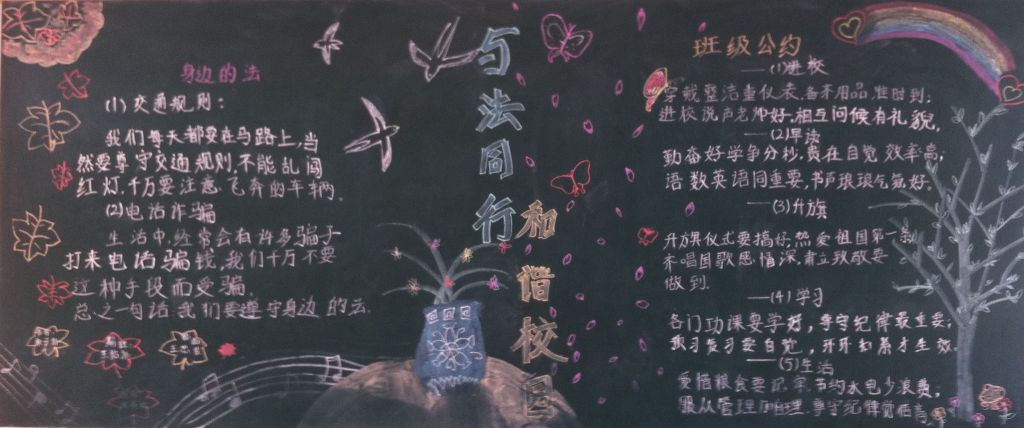 身边的法
(1)交通规则:
我们每天都要在马路上,当
然要尊守交通规则,不能乱闯
红灯,千万要注意飞奔的车辆。
(2)电话诈骗
生活中,经常会有许多骗子
打来电话骗钱,我们千万不要
这种手段而受骗。
总之一句话我们要遵守身边的法
与法同行
和谐校园
班级公约
—(1)进校
穿戴整洁重仪表,备齐用品,准时到;
进校说声老师好,相互问候有礼貌,
—(2)早读
勤奋好学争分秒,贵在自觉效率高,
语数英语同重要,书声琅琅气氛好.
—(3)升旗
升旗仪式要搞好,热爱祖国第一条
齐唱国歌感情深,肃立致敬要
做到.
—(4)学习
各门功课要学好,尊守纪律最重要;
预习复习要自觉,
—(5)生活
爱惜粮食要记牢节约水电少浪费,
服从管理 尊守纪律觉悟高